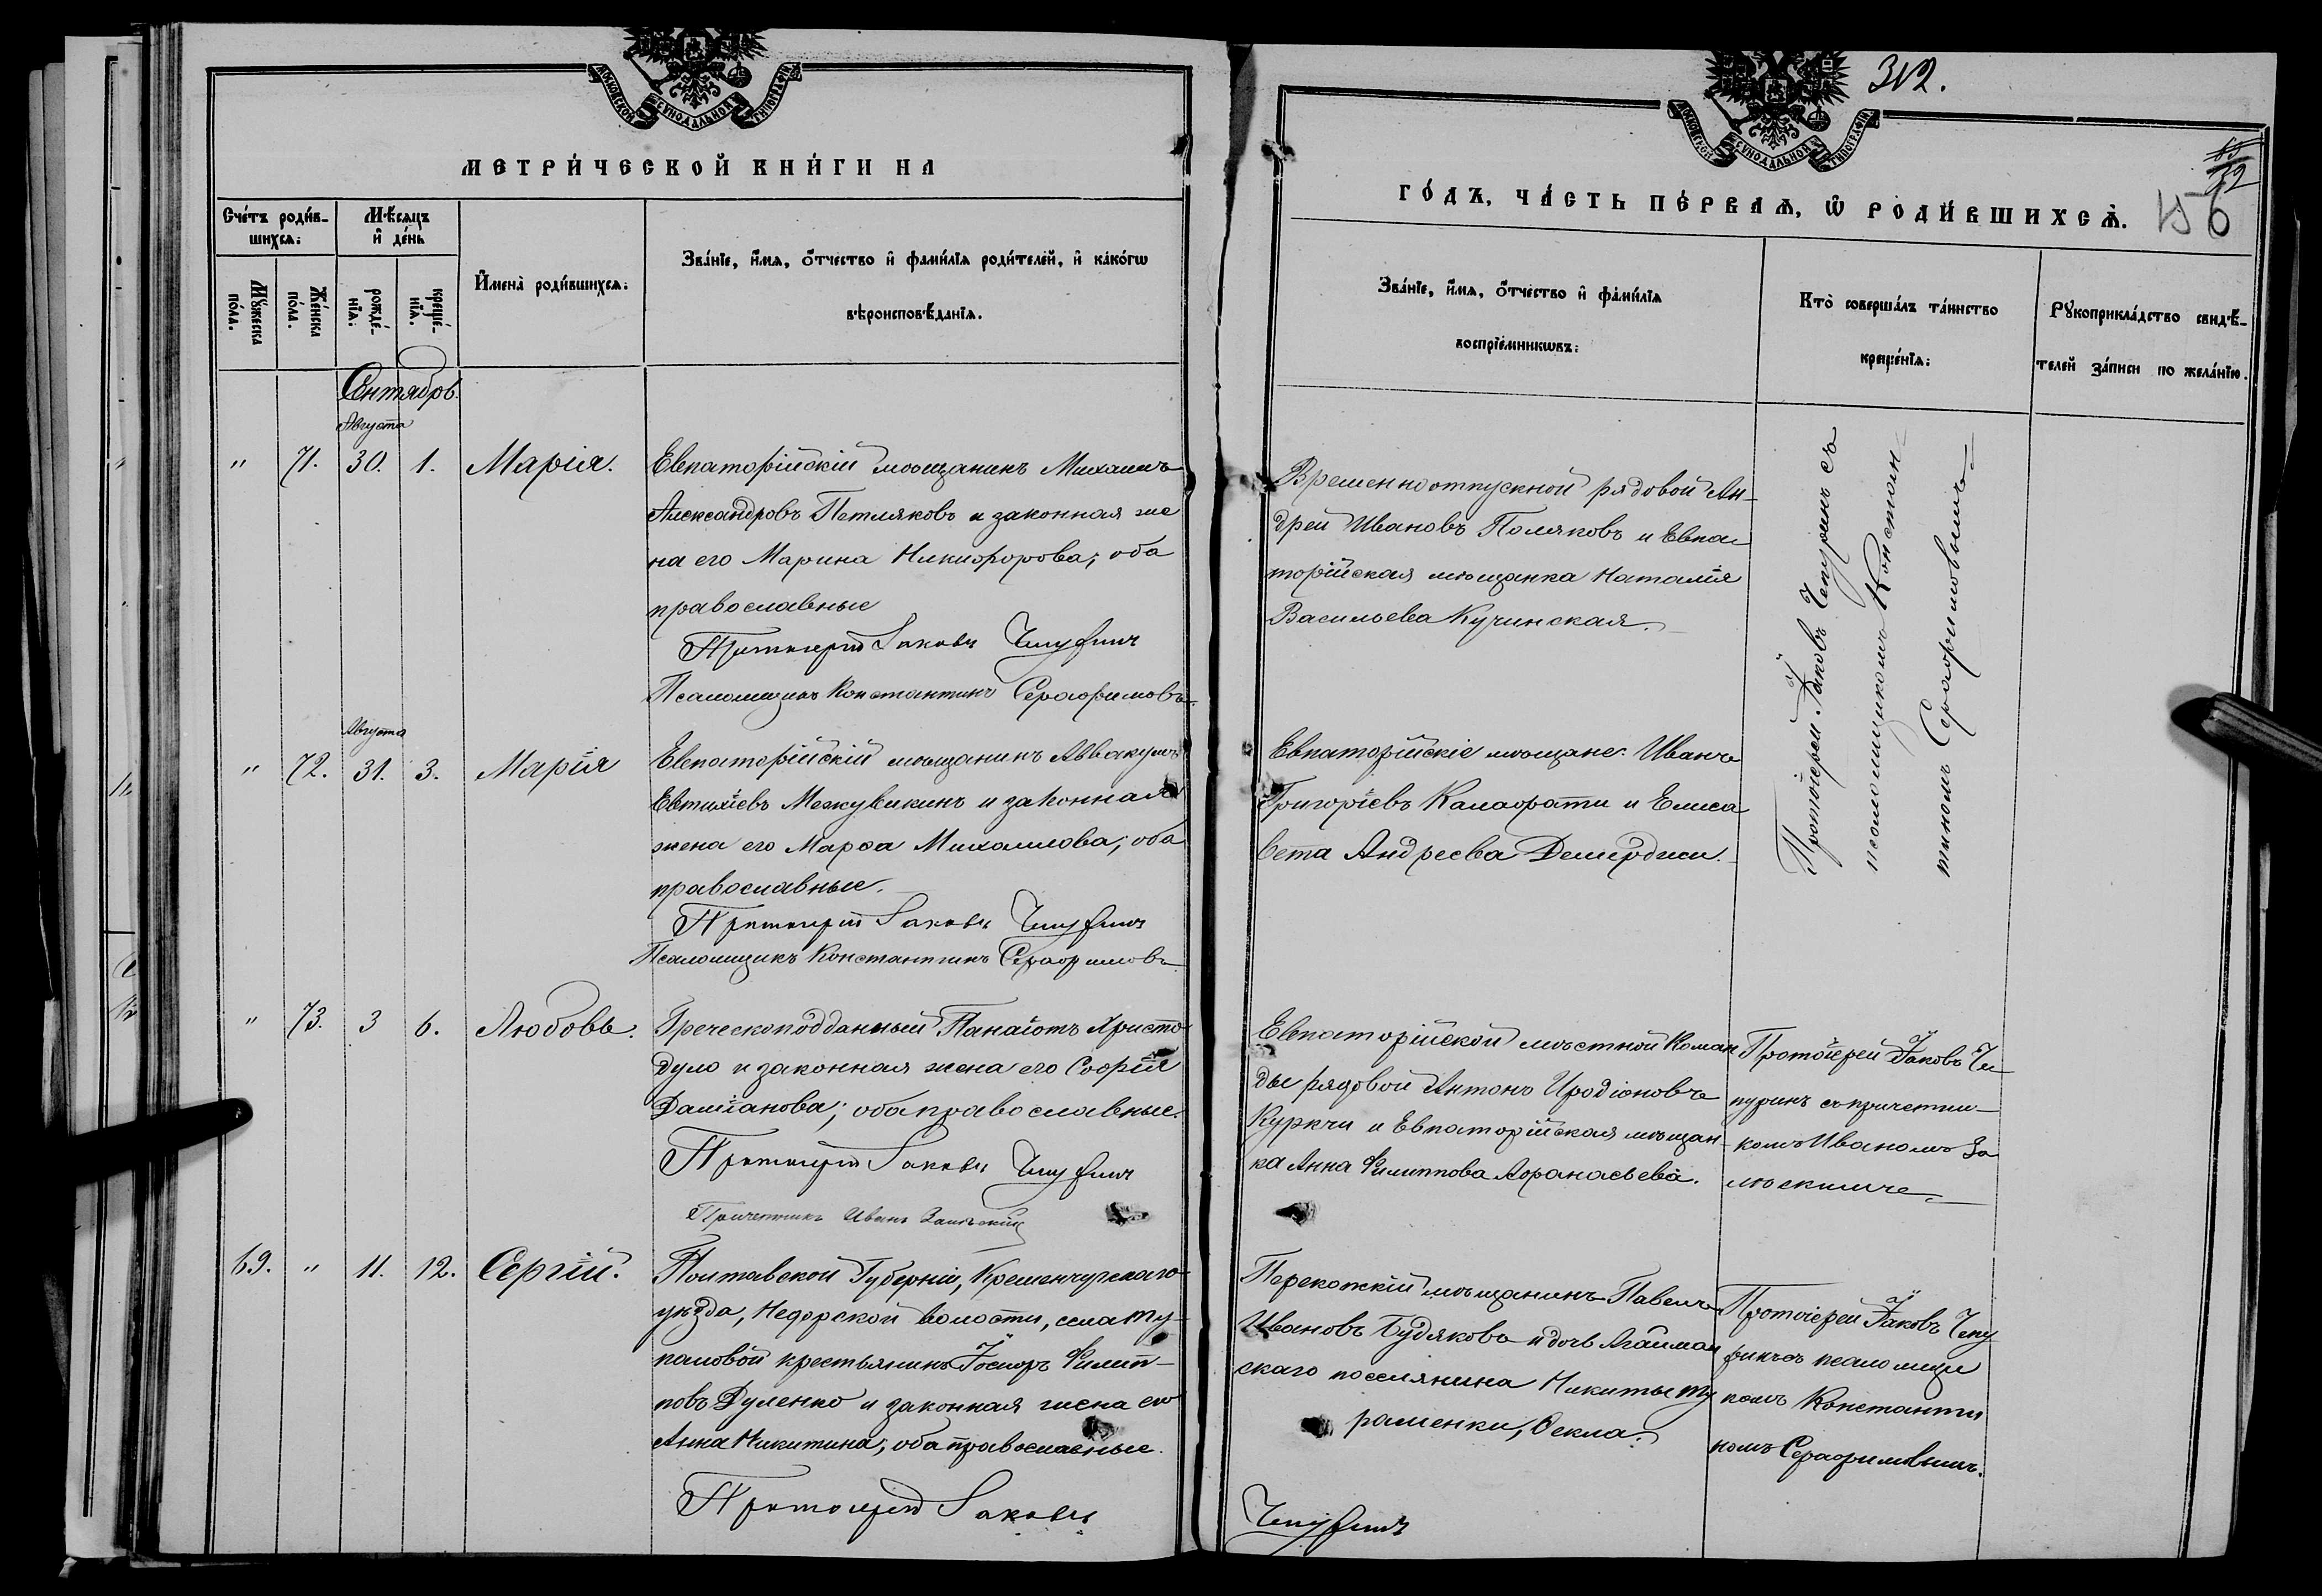 МОСКОВСКОЙ СѴНОДАЛЬНОЙ ТИПОГРАФІИ
МЕТРИ́ЧЕСКОЙ КНИ́ГИ НА
Сче́тъ роди́в-
шихсѧ:
Мѣ́сѧцъ
и҆ де́нь
Мꙋ́жеска
по́ла.
Же́нска
по́ла.
рожде́-
нїѧ:
креще́-
нїѧ.
И҆мена̀ роди́вшихсѧ:
Зва́нїе, и҆́мѧ, ѻ҆́тчество и҆ фами́лїѧ роди́телей, и҆ како́гѡ
вѣроисповѣ́данїѧ.
Сентябрь
Августа
" 71. 30. 1. Марія.
Евпаторійскій мѣщанинъ Михаилъ
Александровъ Петляковъ и законная же
на его Марина Никифорова; оба
православные
Протоіерей Іаковъ Чепуринъ
Псаломщикъ Константинъ Серафимовъ
Августа
" 72. 31. 3. Марія
Евпаторійскій мѣщанинъ Аввакумъ
Евтихіевъ Межувикинъ и законная
жена его Марѳа Михаилова; оба
православные.
Протоіерей Іаковъ Чепуринъ
Псаломщикъ Константинъ Серафимовъ
" 73. 3 6. Любовь.
Греческоподданный Панаіотъ Христо
дуло и законная жена его Софія
Даміанова; оба православные.
Протоіерей Іаковъ Чепуринъ
Причетникъ Иванъ Замѣскій
69. " 11. 12. Сергій.
Полтавской Губерніи, Кременчугскаго
уѣзда, Недогарской волости, села Ту-
паловой крестьянинъ Іосифъ Филип-
повъ Дуленко и законная жена его
Анна Никитина; оба православные.
Протоіерей Іаковъ
312.
МОСКОВСКОЙ СѴНОДАЛЬНОЙ ТИПОГРАФІИ
ГО́ДЪ, ЧА́СТЬ ПЕ́РВАѦ, Ѡ҆ РОДИ́ВШИХСѦ.
156
Зва́нїе, и҆́мѧ, ѻ҆́тчество и҆ фами́лїѧ
воспрїе́мникѡвъ:
Кто̀ соверша́лъ та́инство
креще́нїѧ:
Рꙋкоприкла́дство свидѣ́-
телей за́писи по жела́нїю.
Временноотпускной рядовой Ан-
дрей Ивановъ Поляковъ и Евпа-
торійская мѣщанка Наталія
Васильева Кучинская.
Протоіерей Іаковъ Чепуринъ съ
псаломщикомъ Констан-
тиномъ Серафимовымъ
Евпаторійскіе мѣщане: Иванъ
Григоріевъ Калафати и Елиса
вета Андреева Демерджи.
Евпаторійской мѣстной Коман
ды рядовой Антонъ Иродіоновъ
Куркчи и Евпаторійская мѣщан-
ка Анна Филиппова Афанасьева.
Протоіерей Іаковъ Че
пуринъ съ причетни-
комъ Иваномъ За
мѣскимъ
Перекопскій мѣщанинъ Павелъ
Ивановъ Будяковъ и дочь Агайман
скаго поселянина Никиты Ту
раменки, Ѳекла.
Протоіерей Іаковъ Чепу
ринъ съ псаломщи
комъ Константи
номъ Серафимовымъ.
Чепуринъ